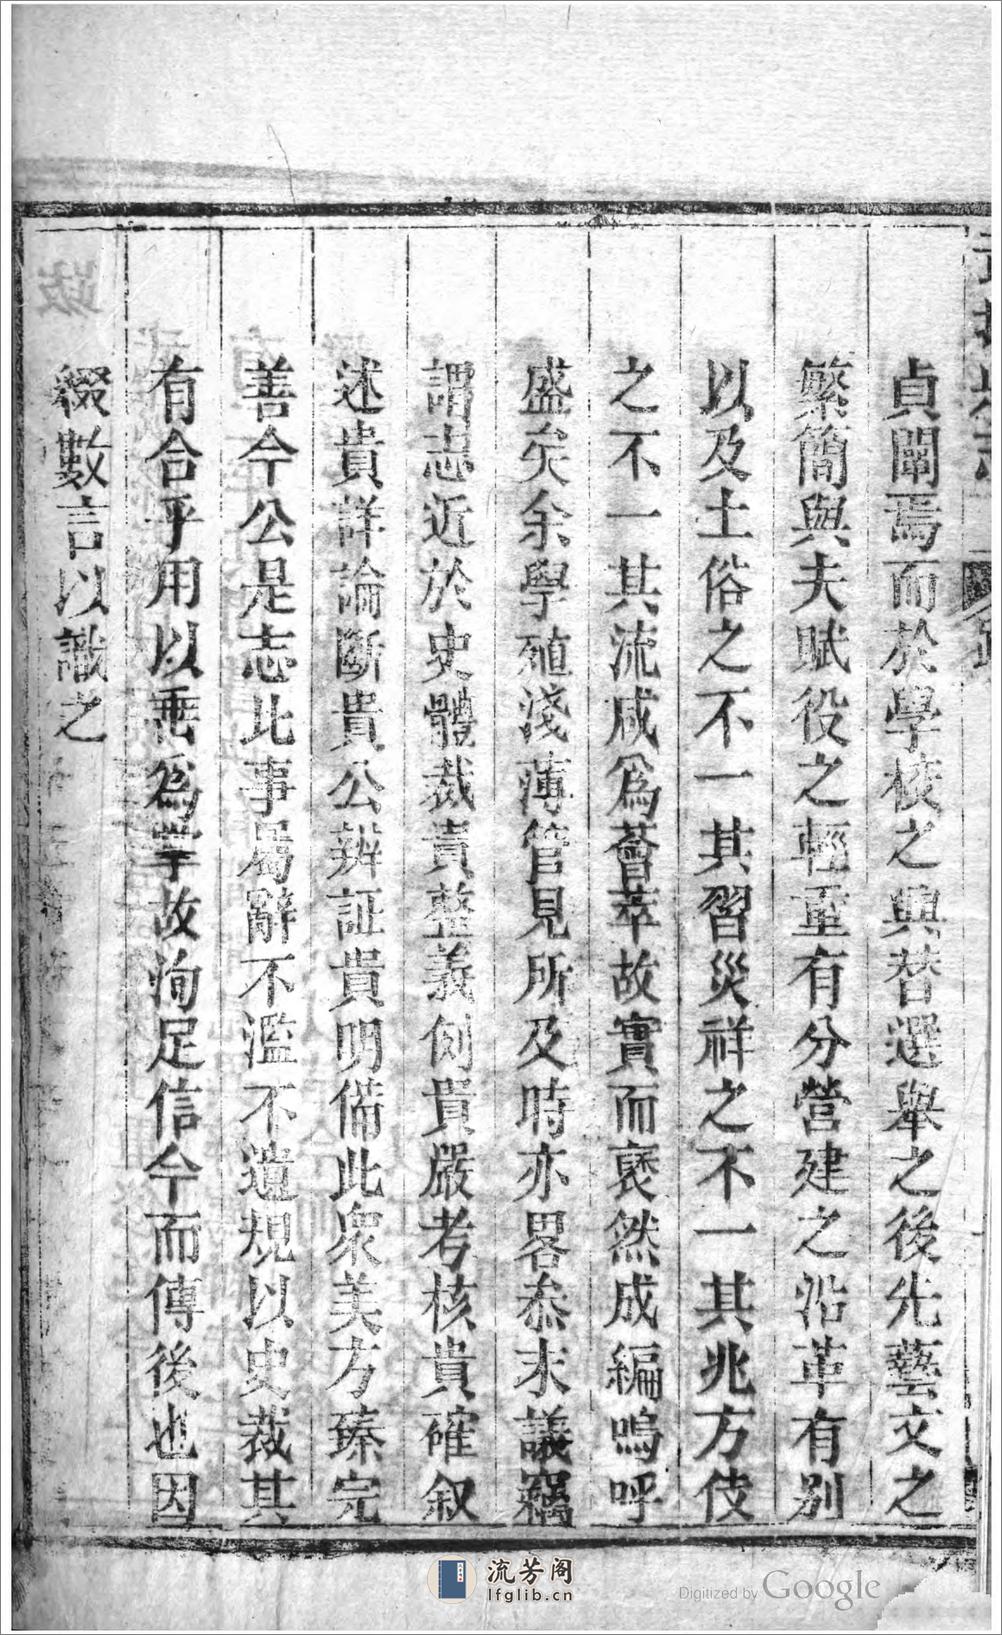 貞闡焉而於學校之興替選舉之後先藝文之
繁簡與夫賦役之輕重有分營建之沿革有別
以及土俗之不一其習災祥之不一其兆方伎
之不一其流咸爲薈萃故實而裒然成編嗚呼
盛矣余學殖淺薄管見所及時亦畧叅末議竊
謂志近於史體裁責整義例貴嚴考核貴確叙
述貴詳論斷貴公辨証貴明備此衆美方臻完
善今公是志比事屬辭不濫不遺規以史裁其
有合乎用以乘爲掌故洵足信今而傳後也因
綴數言以識之
流芳阁
lfglib.cn
Digitized by Google